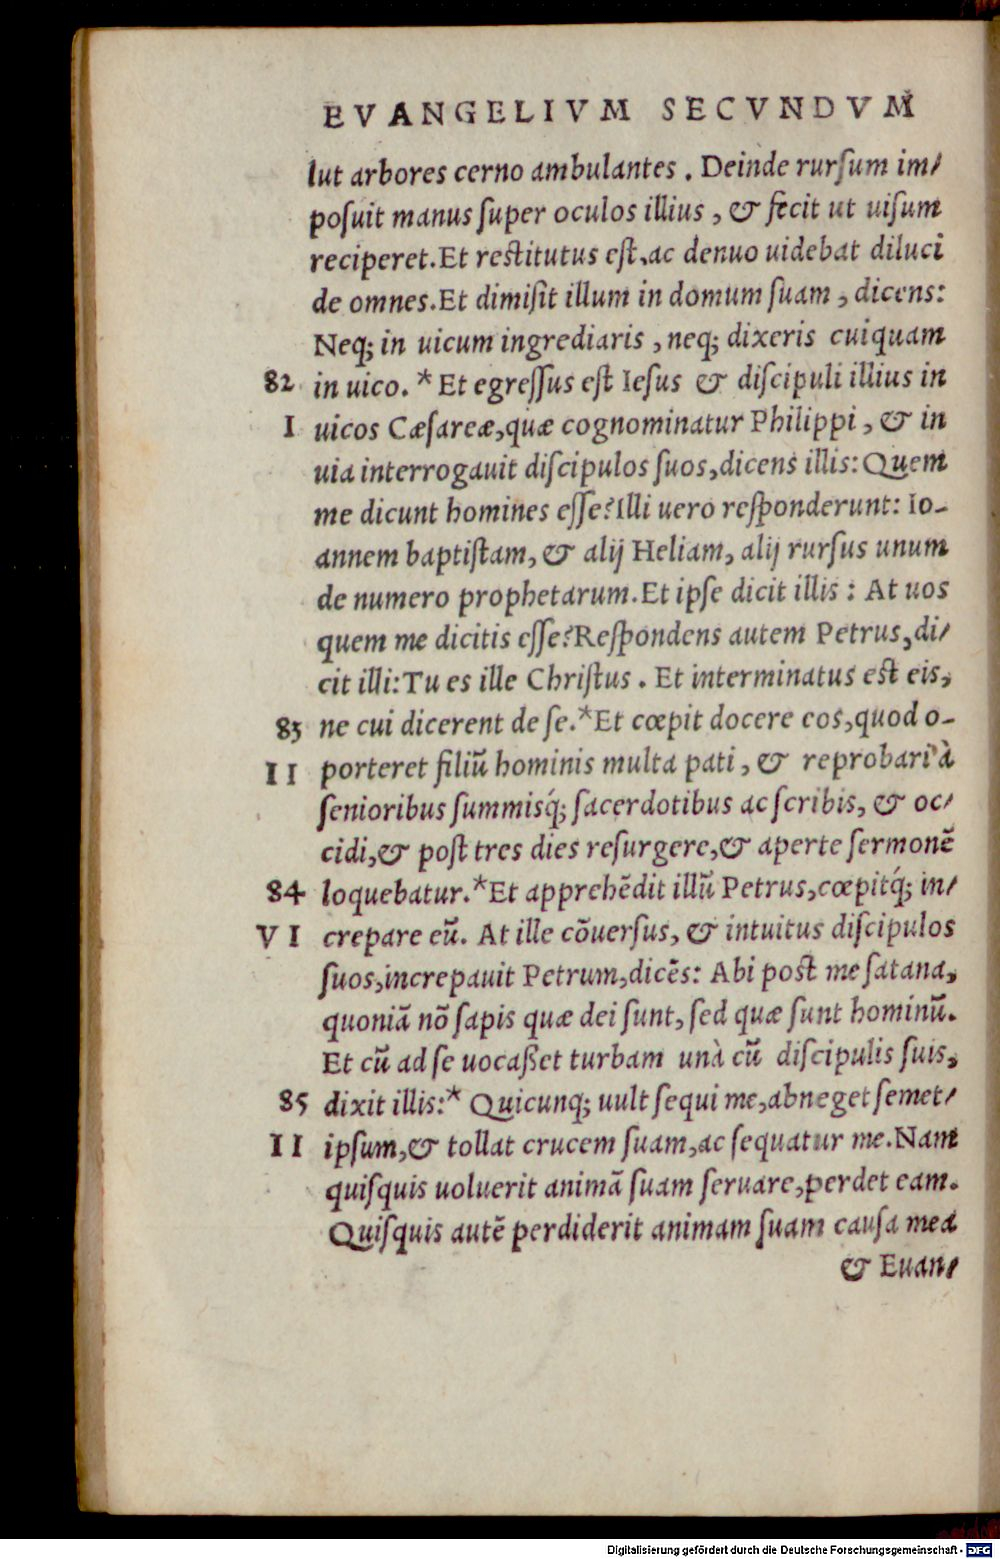 EVANGELIVM SECVNDVM
lut arbores cerno ambulantes . Deinde rurſum im/
poſuit manus ſuper oculos illius , & fecit ut uiſum
reciperet.Et reſtitutus eſt,ac denuo uidebat diluci
de omnes.Et dimiſit illum in domum ſuam , dicens:
Neq; in uicum ingrediaris , neq; dixeris cuiquam
82 in uico. * Et egreſſus eſt Ieſus & diſcipuli illius in
I uicos Cæſareæ,quæ cognominatur Philippi , & in
uia interrogauit diſcipulos ſuos,dicens illis: Quem
me dicunt homines eſſe?Illi uero reſponderunt: Io-
annem baptiſtam, & alij Heliam, alij rurſus unum
de numero prophetarum.Et ipſe dicit illis : At uos
quem me dicitis eſſe?Reſpondens autem Petrus,di/
cit illi:Tu es ille Chriſtus . Et interminatus eſt eis,
83 ne cui dicerent de ſe.*Et cœpit docere eos,quod o-
II porteret filiũ hominis multa pati , & reprobari à
ſenioribus ſummisq́; ſacerdotibus ac ſcribis, & oc/
cidi,& poſt tres dies reſurgere,& aperte ſermonẽ
84 loquebatur.*Et apprehẽdit illũ Petrus,cœpitq́; in/
VI crepare eũ. At ille cõuerſus, & intuitus diſcipulos
ſuos,increpauit Petrum,dicẽs: Abi poſt me ſatana,
quoniã nõ ſapis quæ dei ſunt, ſed quæ ſunt hominũ.
Et cũ ad ſe uocaßet turbam unà cũ diſcipulis ſuis,
85 dixit illis:* Quicunq; uult ſequi me,abneget ſemet/
II ipſum,& tollat crucem ſuam,ac ſequatur me.Nam
quiſquis uoluerit animã ſuam ſeruare,perdet eam.
Quiſquis autẽ perdiderit animam ſuam cauſa mea
& Euan/
Digitalisierung gefördert durch die Deutsche Forschungsgemeinschaft - DFG